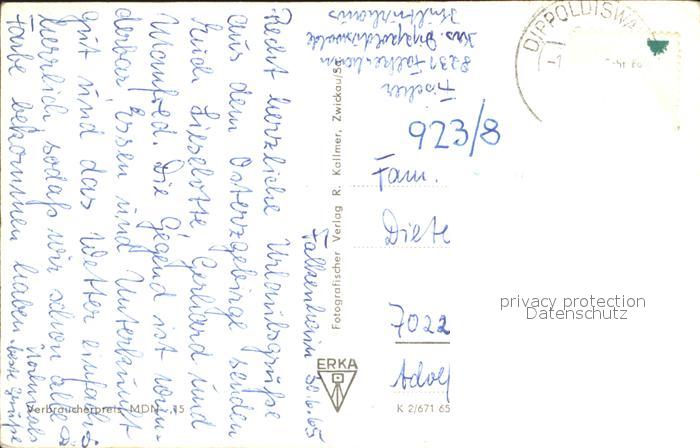 Falkenhain 30.6.65
Recht herzliche Urlaubsgrüße
aus dem Osterzgebirge senden
Euch Lieselotte, Gerhard und
Manfred. Die Gegend ist wun-
derbar Essen und Unterkunft
gut und das Wetter einfach
herrlich, sodaß wir schon alle
Farbe bekommen haben.
Nochmals
beste Grüße
Fischer
8231 Falkenhain
Krs. Dippoldiswalde
DIPPOLDISWA
923/8
Fam.
Diete
7022
Adolf
privacy protection
Datenschutz
Fotografischer Verlag R. Kallmer, Zwickau/Sa.
ERKA
K 2/671 65
Verbraucherpreis MDN -,15